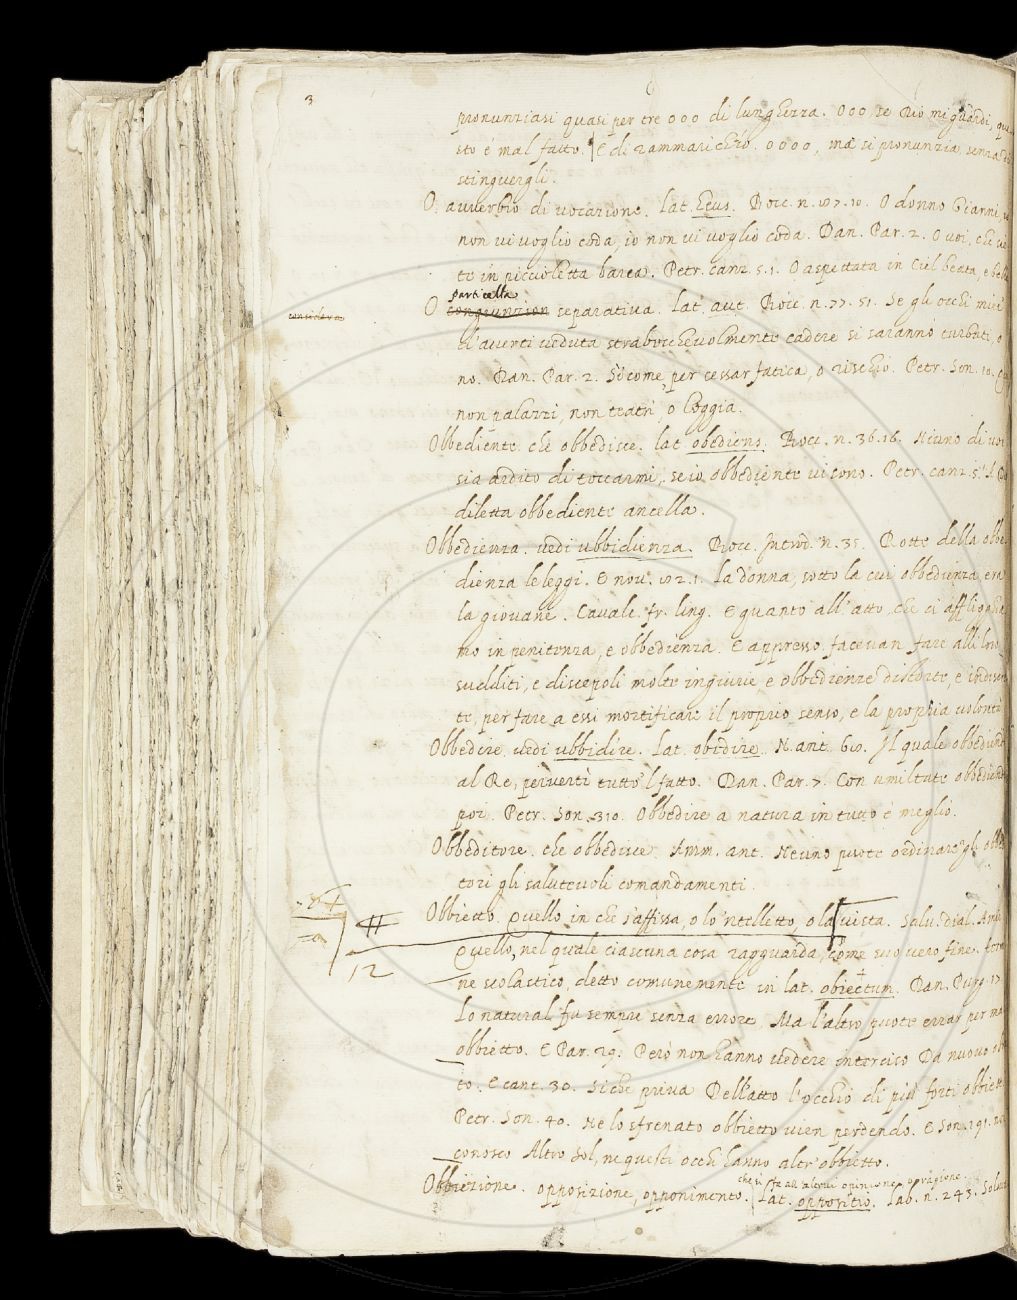 3
pronunziasi quasi per tre ooo di lunghezza. Ooo, se Dio mi guardi, que
sto è mal fatto. E di rammarichio. oooo, ma si pronunzia senza di
stinguergli.
O. avverbio di vocazione. Lat. heus. Bocc. n. 10
O donno Gianni,
non vi voglio coda, io non vi voglio coda. Dan. Par. 2. O voi, che sie
te in piccioletta barca. Petr. canz. 5.1. O aspettata in Ciel beata, e bella
particella
considera
O congiunzion separativa. Lat. aut. Bocc. n. 77. 51. Se gli occhi miei
d'averti veduta strabocchevolmente cadere si saranno turbati, o
no. Dan. Par. 2. Sì come, per cessar fatica, o rischio. Petr. Son. 10. Qui
non palazzi, non teatri, o loggia.
Obbediente. che obbedisce. lat. obediens. Bocc. n. 36.16. Niuno di voi
sia ardito di toccarmi, se io obbediente vi sono. Petr. canz. 5.
diletta obbediente ancella.
Obbedienza. vedi ubbidienza. Bocc. Introd. n. 35. Rotte della obbe
dienza le leggi. E nov. 102.1. La donna, sotto la cui obbedienza era
la giovane. Cavalc. fr. ling. E quanto all'atto, che ci affliggha
mo in penitenza, e obbedienza. E appresso. facevan fare alli loro
sudditi, e discepoli molte ingiurie e obbedienze discorte, e indiscre
te, per fare a essi mortificare il proprio senso, e la propria volontà
Obbedire, vedi ubbidire. Lat. obedire. N. ant. 60. Il quale obbediendo
al Re, pervertì tutto 'l fatto. Dan. Par. 7. Con umiltate obbediendo
poi. Petr. Son. 310. Obbedire a natura in tutto è meglio.
Obbeditore. che obbedisce. Amm. ant. Neuno puote ordinare gli obbedi
tori gli salutevoli comandamenti.
Obbietto. Quello, in che s'affissa, o lo 'ntelletto, o la vista. Salv. dial. Amic.
Quello, nel quale ciascuna cosa ragguarda, come suo vero fine.
12
ne scolastico, detto comunemente in lat. obiectum. Dan. Purg. 17
Lo natural fu sempre senza errore, Ma l'altro puote errar per mal
obbietto. E Par. 29. Però non hanno vedere interciso Da nuovo ob
to. E cant. 30. Sì che priva Dell'atto l'occhio di più forti obbietti
Petr. Son. 40. Ne lo sfrenato obbietto vien perdendo. E Son. 291. non
conosco Altro Sol, ne questi occhi hanno altr'obbietto.
che si fa all'altrui opinione, o ragione.
Obbiezione. opposizione, opponimento. Lat. oppositio. Lab. n. 243.